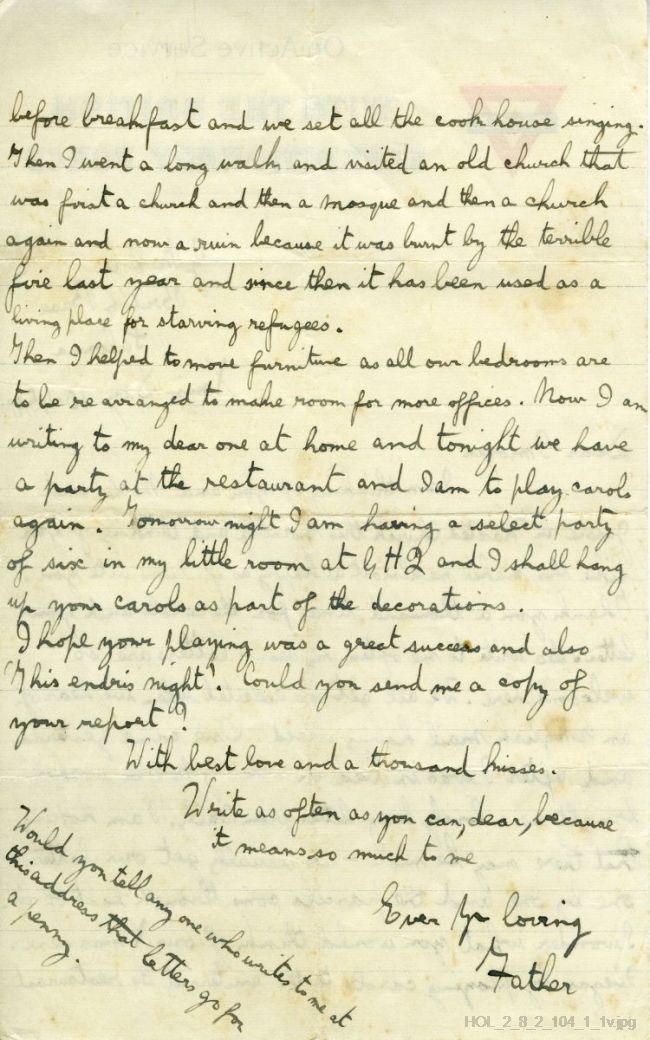 before breakfast and we set all the cook house singing.
Then I went a long walk and visited an old church that
was first a church and then a mosque and then a church
again and now a ruin because it was burnt by the terrible
fire last year and since then it has been used as a
living place for starving refugees.
Then I helped to move furniture as all our bedrooms are
to be rearranged to make room for more offices. Now I am
writing to my dear one at home and tonight we have
a party at the restaurant and I am to play carols
again. Tomorrow night I am having a select party
of six in my little room at GHQ and I shall hang
up your carols as part of the decorations.
I hope your playing was a great success and also
'This endris night'. Could you send me a copy of
your report?
With best love and a thousand kisses.
Write as often as you can, dear, because
it means so much to me
Ever Yr loving
Father
Would you tell any one who writes to me at
this address that letters go for
a penny.
On Active Service
HOL_2_8_2_104_1_1v.jpg